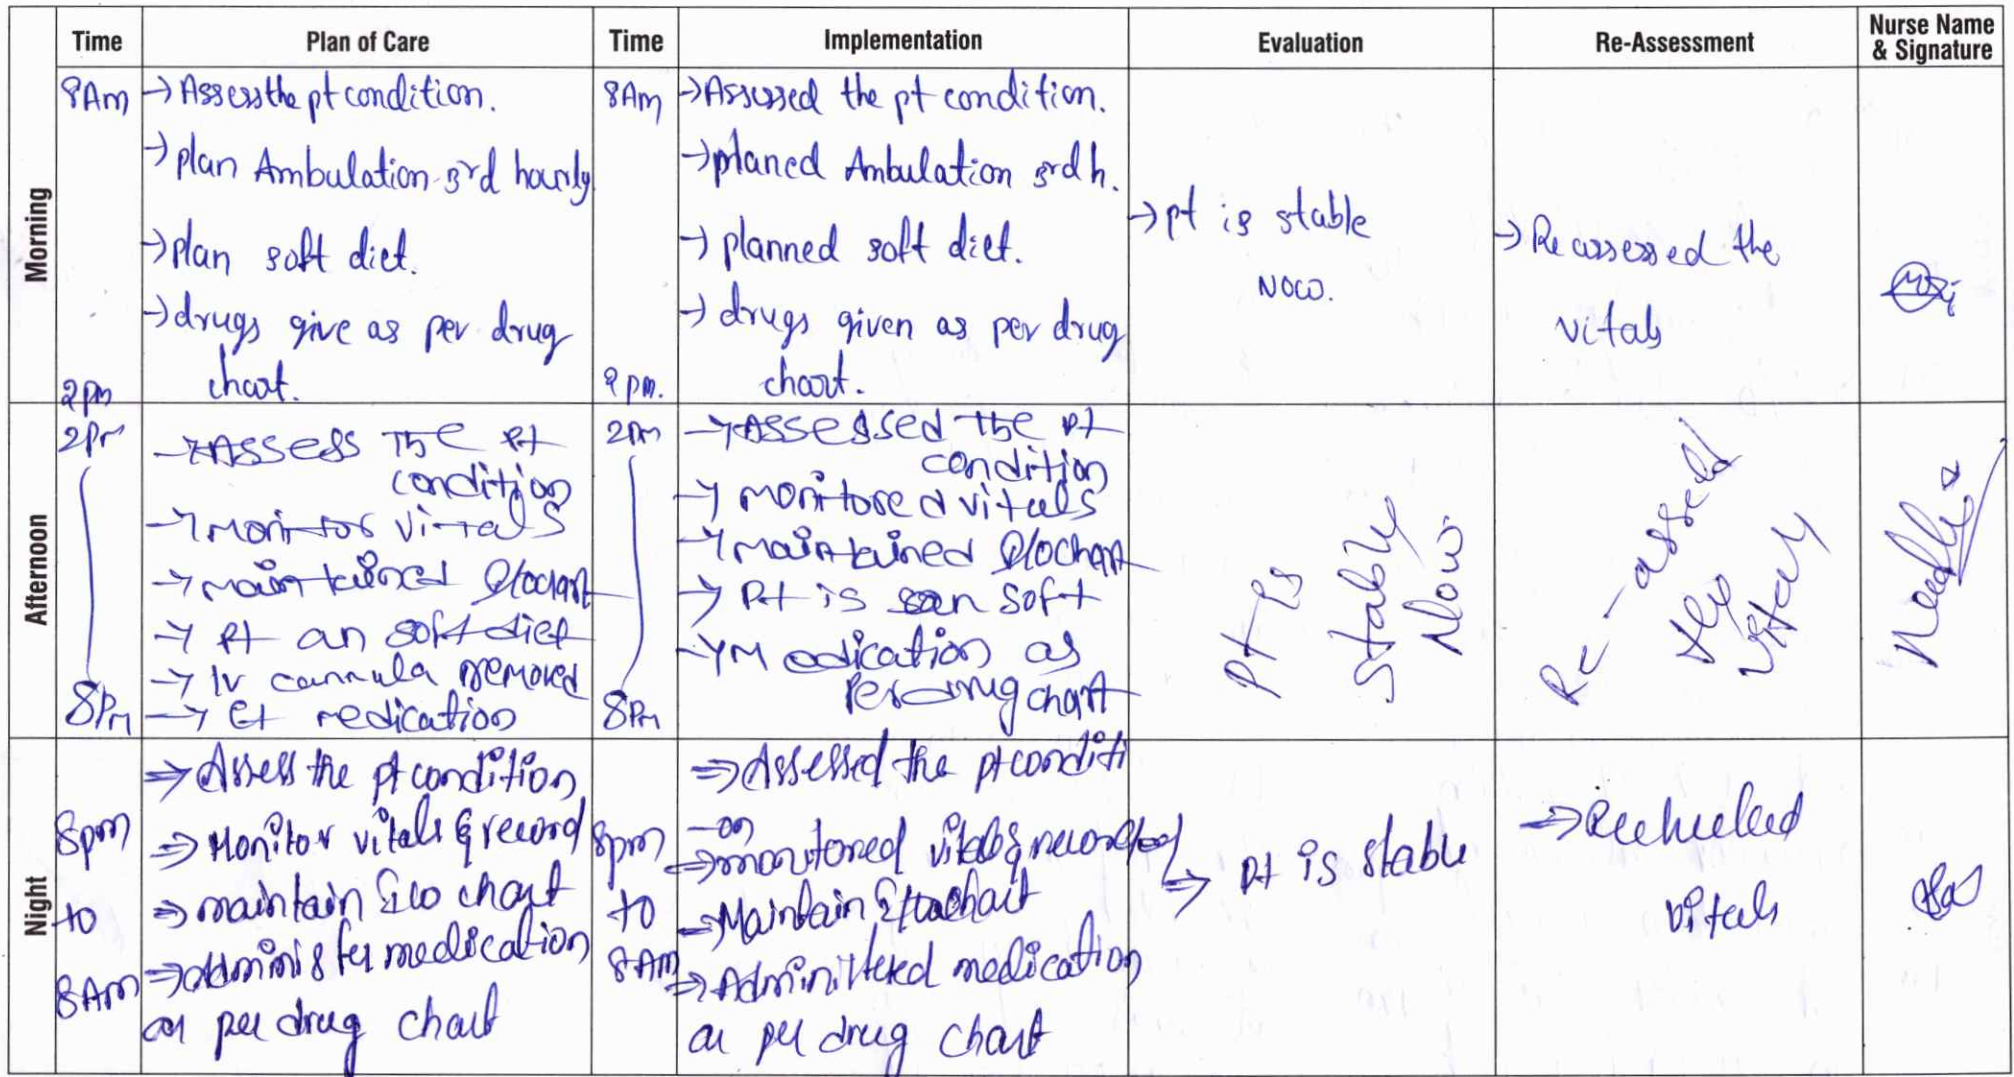 Time Plan of Care Time Implementation Evaluation Re-Assessment Nurse Name & Signature
Morning
8Am
→ Assess the pt condition.
→ plan Ambulation 3rd hourly
→ plan soft diet.
→ drugs give as per drug
chart.
2pm
8Am
→ Assessed the pt condition.
→ planed Ambulation 3rd h.
→ planned soft diet.
→ drugs given as per drug
chart.
2 pm.
→ pt is stable
Now.
→ Re assessed the
vitals
Afternoon
2Pm
8Pm
→ Assess The pt
condition
→ monitor vitals
→ maintained I/o chart
→ Pt an soft diet
→ IV cannula removed
→ medication
2Pm
8Pm
→ Assessed the pt
condition
→ monitored vitals
→ maintained I/o chart
→ Pt is on soft
→ Medication as
Per drug chart
pt is
stable
Now.
Re-assed
the
vitals
Night
8pm
to
8Am
⇒ Assess the pt condition
⇒ Monitor vitals & record
⇒ maintain I/o chart
⇒ administer medication
as per drug chart
8pm
to
8AM
⇒ Assessed the pt conditi
-on
⇒ monitored vitals & recorded
⇒ Maintain chart
⇒ Administered medication
as per drug chart
⇒ pt is stable
⇒ Rechecked
vitals